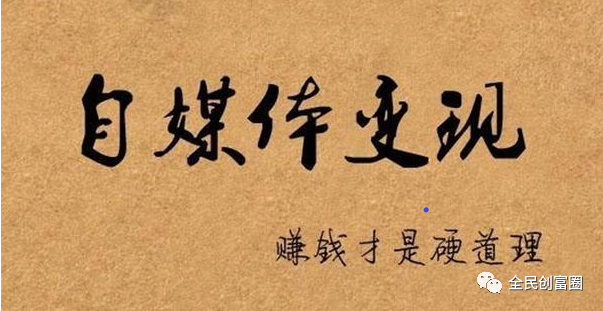 自媒体变现
赚钱才是硬道理
全民创富圈